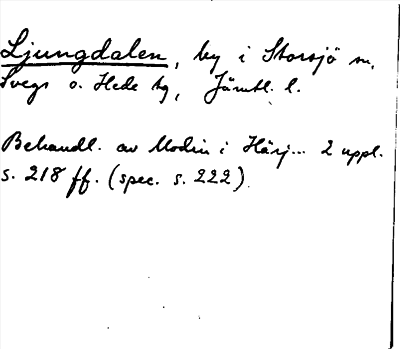 Ljungdalen, by i Storsjö sn,
Svegs o. Hede tg, Jämtl. l.
Behandl. av Modin i Härj... 2 uppl.
s. 218 ff. (spec. s. 222).